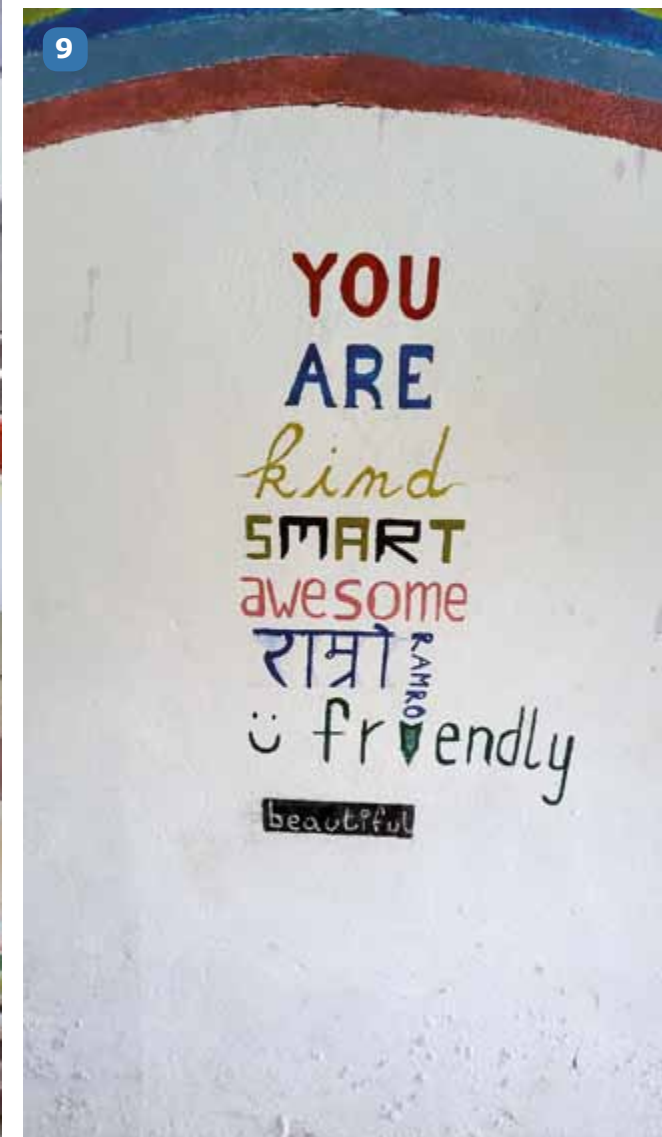 9
YOU
ARE
kind
SMART
awesome
राम्रो RAMRO
friendly
beautiful